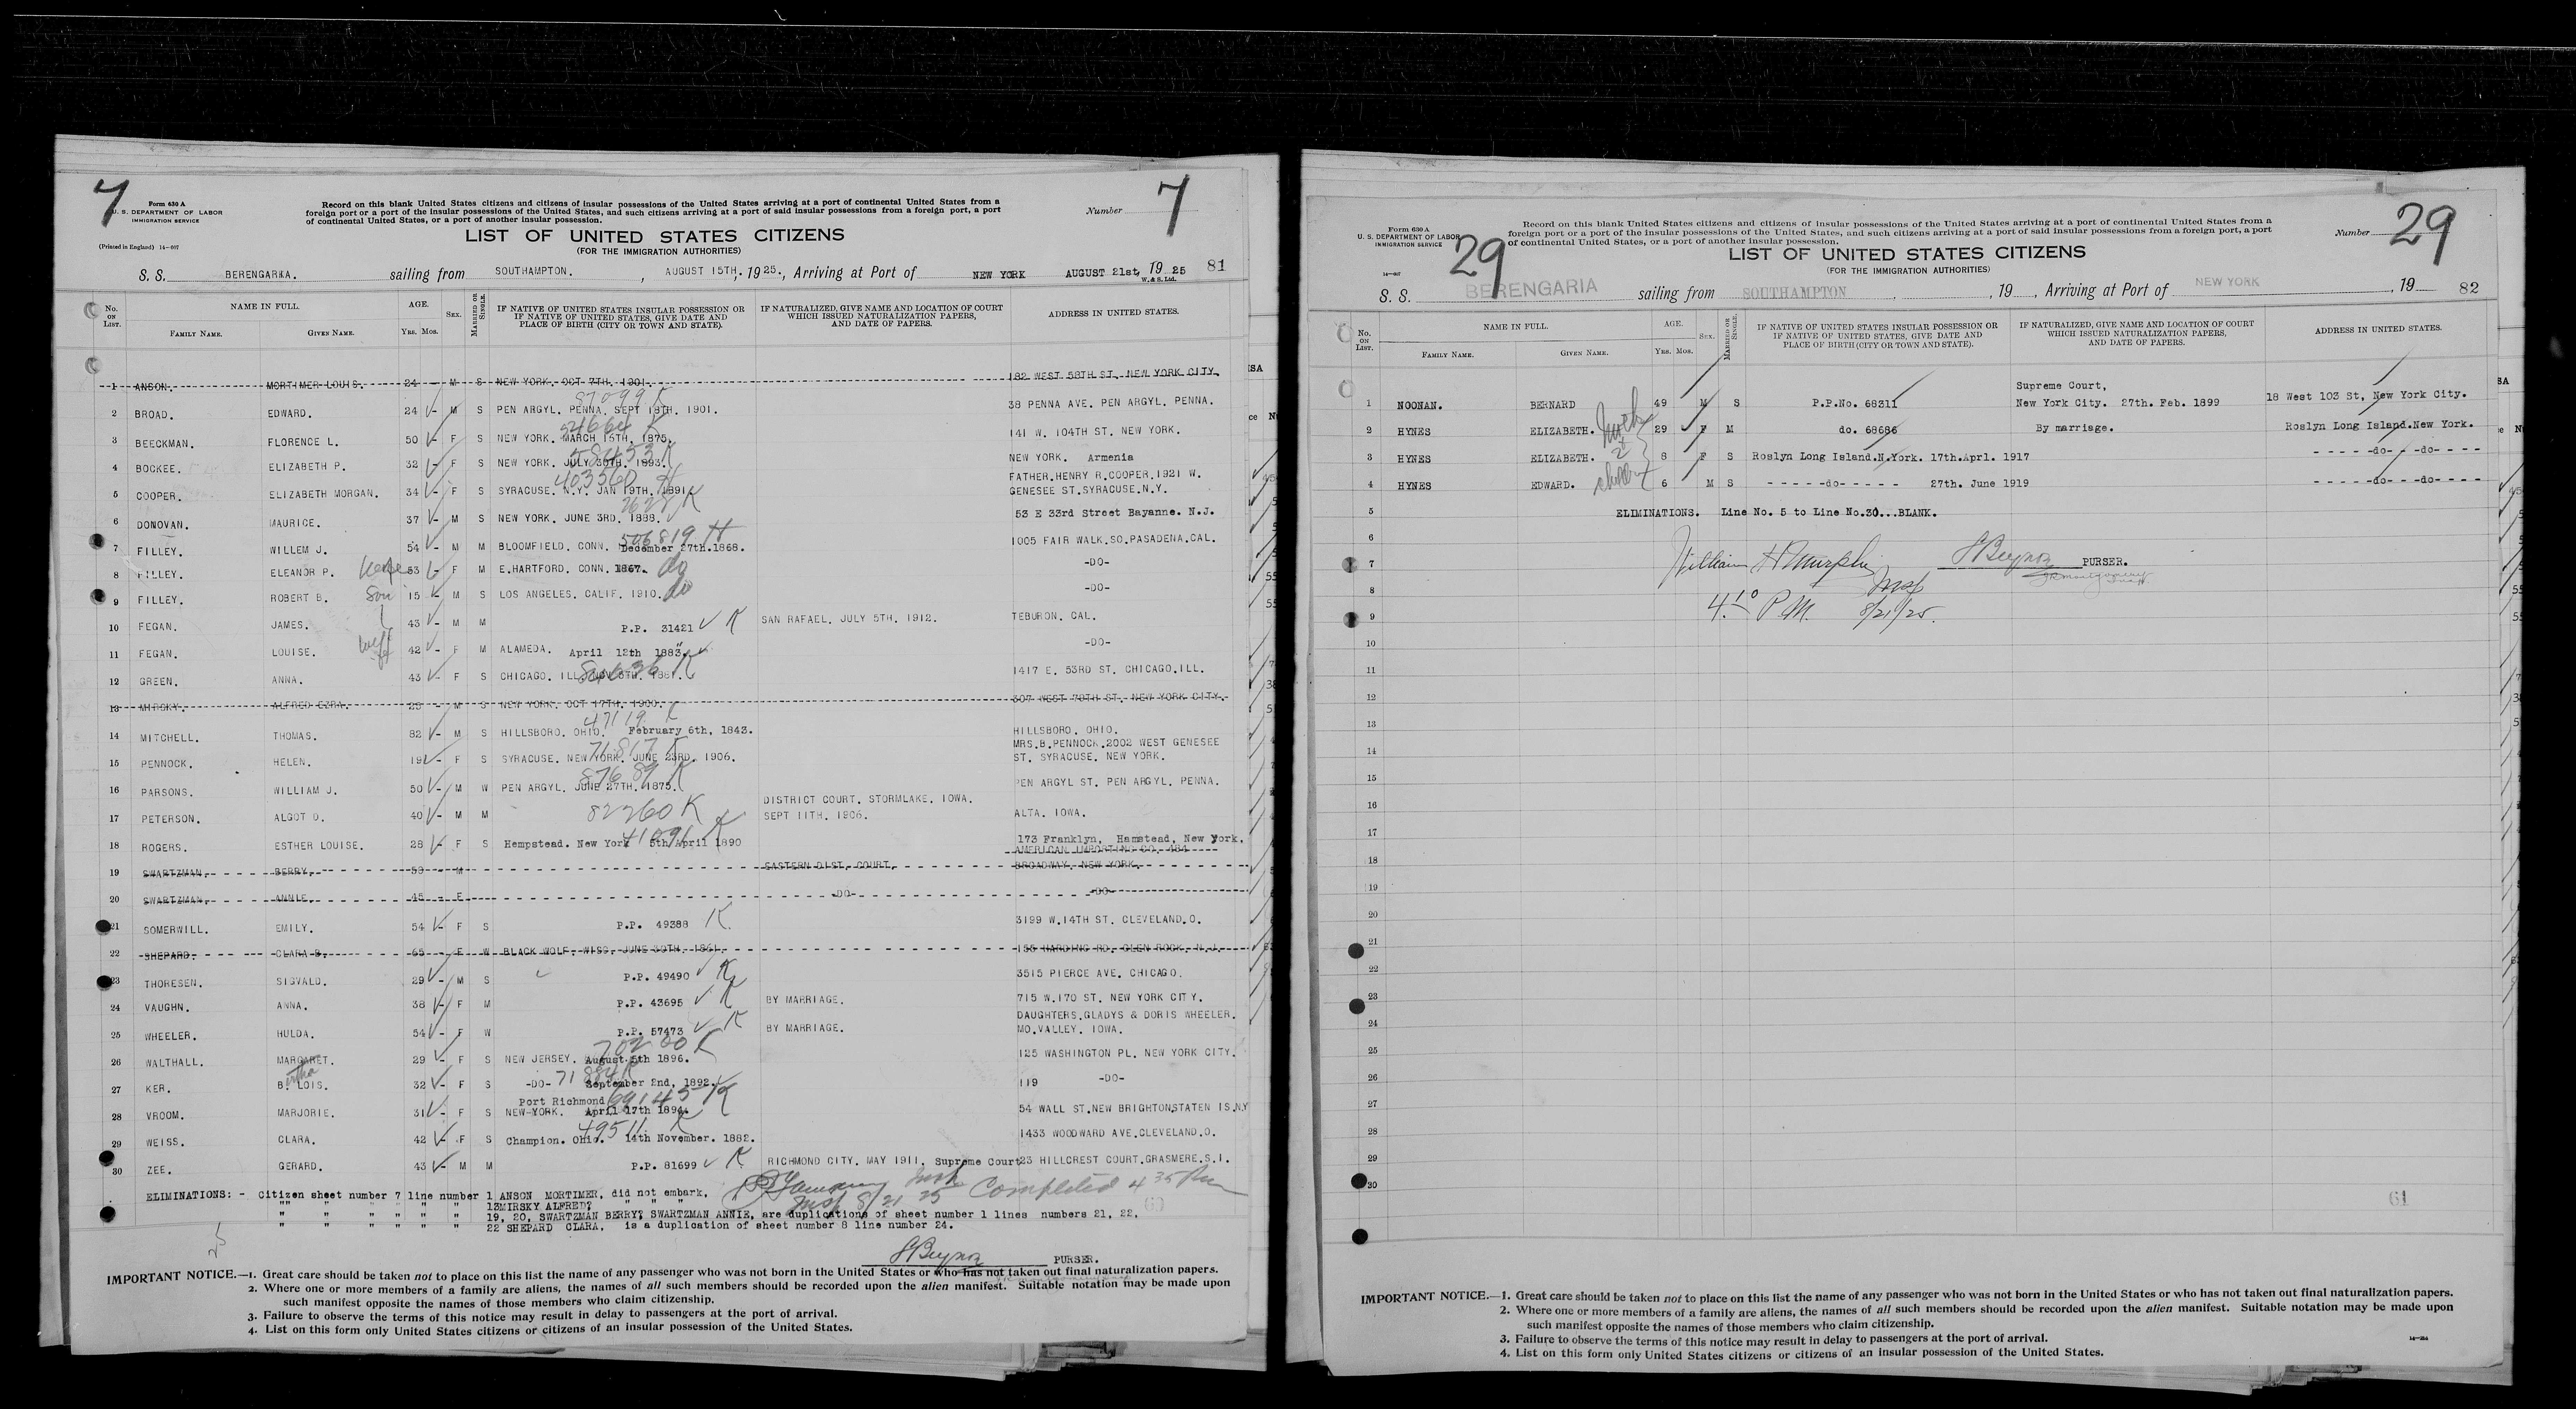 7
Form 630 A
U. S. DEPARTMENT OF LABOR
IMMIGRATION SERVICE
(Printed in England) 14—607
Record on this blank United States citizens and citizens of insular possessions of the United States arriving at a port of continental United States from a
foreign port or a port of the insular possessions of the United States, and such citizens arriving at a port of said insular possessions from a foreign port, a port
of continental United States, or a port of another insular possession.
Number 7
LIST OF UNITED STATES CITIZENS
(FOR THE IMMIGRATION AUTHORITIES)
S. S. BERENGARIA. sailing from SOUTHAMPTON. , AUGUST 15TH, 1925., Arriving at Port of NEW YORK AUGUST 21st, 1925 81
W. & S. Ltd.
No. ON LIST. NAME IN FULL. FAMILY NAME. GIVEN NAME. AGE. YRS. MOS. SEX. MARRIED OR SINGLE. IF NATIVE OF UNITED STATES INSULAR POSSESSION OR IF NATIVE OF UNITED STATES, GIVE DATE AND PLACE OF BIRTH (CITY OR TOWN AND STATE). IF NATURALIZED, GIVE NAME AND LOCATION OF COURT WHICH ISSUED NATURALIZATION PAPERS, AND DATE OF PAPERS. ADDRESS IN UNITED STATES.
1 ANSON. MORTIMER LOUIS. 24 - M S NEW YORK. OCT 7TH. 1901. 182 WEST 58TH ST. NEW YORK CITY.
87099 K
2 BROAD. EDWARD. 24 - M S PEN ARGYL. PENNA. SEPT 18TH. 1901. 38 PENNA AVE. PEN ARGYL. PENNA.
54664 K
3 BEECKMAN. FLORENCE L. 50 - F S NEW YORK. MARCH 15TH. 1875. 141 W. 104TH ST. NEW YORK.
58453 K
4 BOCKEE. ELIZABETH P. 32 - F S NEW YORK. JULY 30TH. 1893. NEW YORK. Armenia
403560 H
5 COOPER. ELIZABETH MORGAN. 34 - F S SYRACUSE. N.Y. JAN 19TH. 1891. FATHER.HENRY R.COOPER.1921 W. GENESEE ST.SYRACUSE.N.Y.
2628 K
6 DONOVAN. MAURICE. 37 - M S NEW YORK. JUNE 3RD. 1888. 53 E 33rd Street Bayanne. N.J.
506819 H
7 FILLEY. WILLEM J. 54 - M M BLOOMFIELD. CONN. December 27th.1868. 1005 FAIR WALK.SO.PASADENA.CAL.
8 FILLEY. ELEANOR P. wife 53 - F M E.HARTFORD. CONN. 1867. do -DO-
9 FILLEY. ROBERT B. Son 15 - M S LOS ANGELES. CALIF. 1910. do -DO-
10 FEGAN. JAMES. 43 - M M P.P. 31421 K SAN RAFAEL. JULY 5TH. 1912. TEBURON. CAL.
11 FEGAN. LOUISE. wife 42 - F M ALAMEDA. April 12th 1883. -DO-
12 GREEN. ANNA. 43 - F S CHICAGO. ILL. 1881. 1417 E. 53RD ST. CHICAGO.ILL.
13 MIRSKY. ALFRED EZRA. 25 - M S NEW YORK. OCT 17TH. 1900. 307 WEST 79TH ST. NEW YORK CITY.
47119 K
14 MITCHELL. THOMAS. 82 - M S HILLSBORO. OHIO. February 6th, 1843. HILLSBORO. OHIO.
71817 K
15 PENNOCK. HELEN. 19 - F S SYRACUSE. NEW YORK. JUNE 23RD. 1906. MRS.B.PENNOCK.2002 WEST GENESEE ST. SYRACUSE. NEW YORK.
87689 K
16 PARSONS. WILLIAM J. 50 - M W PEN ARGYL. JUNE 27TH. 1875. PEN ARGYL ST. PEN ARGYL. PENNA.
17 PETERSON. ALGOT O. 40 - M M 82260 K DISTRICT COURT. STORMLAKE. IOWA. SEPT 11TH. 1906. ALTA. IOWA.
41091 K
18 ROGERS. ESTHER LOUISE. 28 - F S Hempstead. New York 5th April 1890 173 Franklyn, Hamstead, New York,
19 SWARTZMAN. BERRY. 50 - M EASTERN DIST. COURT. AMERICAN IMPORTING CO. 484 BROADWAY. NEW YORK.
20 SWARTZMAN. ANNIE. 45 - F -DO- -DO-
21 SOMERWILL. EMILY. 54 - F S P.P. 49388 K 3199 W.14TH ST. CLEVELAND.O.
22 SHEPARD. CLARA B. 65 - F W BLACK WOLF. WISC. JUNE 30TH. 1861. 155 HARDING RD. GLEN ROCK. N.J.
23 THORESEN. SIGVALD. 29 - M S P.P. 49490 K 3515 PIERCE AVE. CHICAGO.
24 VAUGHN. ANNA. 38 - F M P.P. 43695 K BY MARRIAGE. 715 W.170 ST. NEW YORK CITY.
25 WHEELER. HULDA. 54 - F W P.P. 57473 K BY MARRIAGE. DAUGHTERS.GLADYS & DORIS WHEELER. MO.VALLEY. IOWA.
70200 K
26 WALTHALL. MARGARET. 29 - F S NEW JERSEY. August 5th 1896. 125 WASHINGTON PL. NEW YORK CITY.
71884 K
27 KER. B. LOIS. 32 - F S -DO- September 2nd, 1892. 119 -DO-
Port Richmond 69145 K
28 VROOM. MARJORIE. 31 - F S NEW YORK. April 17th 1894. 54 WALL ST.NEW BRIGHTON.STATEN IS.N.Y
49511 K
29 WEISS. CLARA. 42 - F S Champion. Ohio. 14th November. 1882. 1433 WOODWARD AVE.CLEVELAND.O.
30 ZEE. GERARD. 43 - M M P.P. 81699 K RICHMOND CITY. MAY 1911. Supreme Court 23 HILLCREST COURT.GRASMERE.S.I.
ELIMINATIONS: - Citizen sheet number 7 line number 1 ANSON MORTIMER, did not embark,
" " " " " " 13 MIRSKY ALFRED, " " "
" " " " " " 19, 20, SWARTZMAN BERRY, SWARTZMAN ANNIE, are duplications of sheet number 1 lines numbers 21, 22.
" " " " " " 22 SHEPARD CLARA. is a duplication of sheet number 8 line number 24.
Insp 8/21 25 Completed 4 35 Pm
PURSER.
IMPORTANT NOTICE.—1. Great care should be taken not to place on this list the name of any passenger who was not born in the United States or who has not taken out final naturalization papers.
2. Where one or more members of a family are aliens, the names of all such members should be recorded upon the alien manifest. Suitable notation may be made upon
such manifest opposite the names of those members who claim citizenship.
3. Failure to observe the terms of this notice may result in delay to passengers at the port of arrival.
4. List on this form only United States citizens or citizens of an insular possession of the United States.
29
Form 630 A
U. S. DEPARTMENT OF LABOR
IMMIGRATION SERVICE
14—607
Record on this blank United States citizens and citizens of insular possessions of the United States arriving at a port of continental United States from a
foreign port or a port of the insular possessions of the United States, and such citizens arriving at a port of said insular possessions from a foreign port, a port
of continental United States, or a port of another insular possession.
Number 29
LIST OF UNITED STATES CITIZENS
(FOR THE IMMIGRATION AUTHORITIES)
S. S. BERENGARIA sailing from SOUTHAMPTON , , 19 , Arriving at Port of NEW YORK , 19 82
No. ON LIST. NAME IN FULL. FAMILY NAME. GIVEN NAME. AGE. YRS. MOS. SEX. MARRIED OR SINGLE. IF NATIVE OF UNITED STATES INSULAR POSSESSION OR IF NATIVE OF UNITED STATES, GIVE DATE AND PLACE OF BIRTH (CITY OR TOWN AND STATE). IF NATURALIZED, GIVE NAME AND LOCATION OF COURT WHICH ISSUED NATURALIZATION PAPERS, AND DATE OF PAPERS. ADDRESS IN UNITED STATES.
1 NOONAN. BERNARD 49 M S P.P.No. 68311 Supreme Court, New York City. 27th. Feb. 1899 18 West 103 St, New York City.
2 HYNES ELIZABETH. 29 F M do. 68686 By marriage. Roslyn Long Island.New York.
3 HYNES ELIZABETH. 8 F S Roslyn Long Island.N.York. 17th.Aprl. 1917 - - - - -do- - -do- - - -
4 HYNES EDWARD. 6 M S - - - - -do- - - - - 27th. June 1919 - - - - -do- - -do- - - -
5 ELIMINATIONS. Line No. 5 to Line No.30...BLANK.
6
7 William H Murphy PURSER.
8 Insp
9 4.10 P.M. 8/21/25.
10
11
12
13
14
15
16
17
18
19
20
21
22
23
24
25
26
27
28
29
30
61
IMPORTANT NOTICE.—1. Great care should be taken not to place on this list the name of any passenger who was not born in the United States or who has not taken out final naturalization papers.
2. Where one or more members of a family are aliens, the names of all such members should be recorded upon the alien manifest. Suitable notation may be made upon
such manifest opposite the names of those members who claim citizenship.
3. Failure to observe the terms of this notice may result in delay to passengers at the port of arrival.
4. List on this form only United States citizens or citizens of an insular possession of the United States.